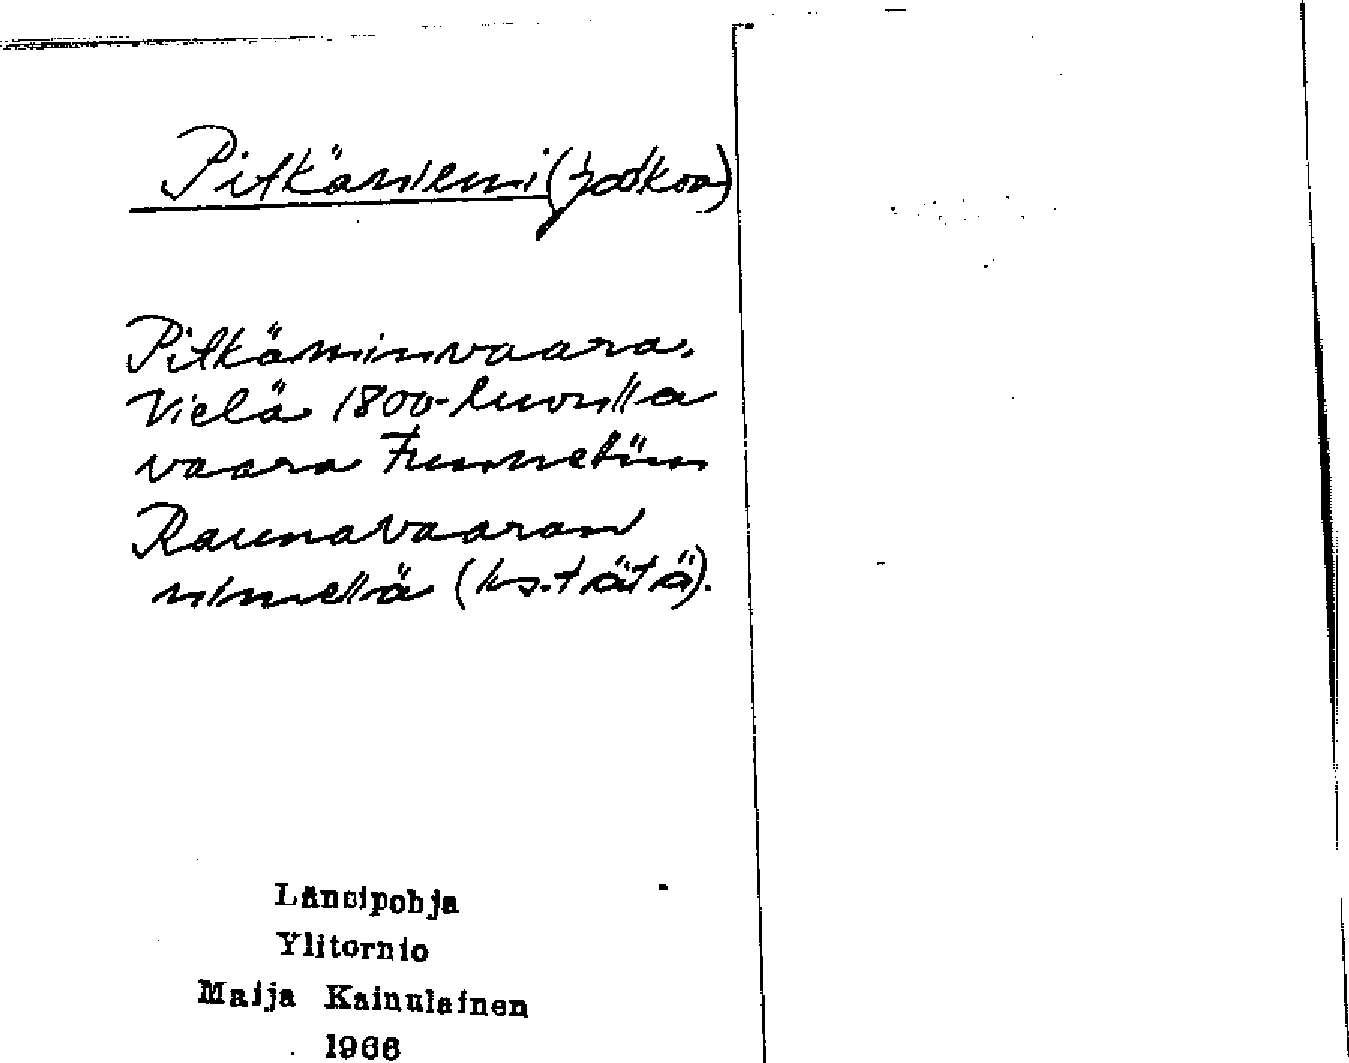 Pitkäniemi (jatkoa)
Pitkäminvaara.
Vielä 1800-luvulla
vaara tunnettiin
Raunavaaran
nimellä (ks. tätä).
Länsipohja
Ylitornio
Maija Kainulainen
1966